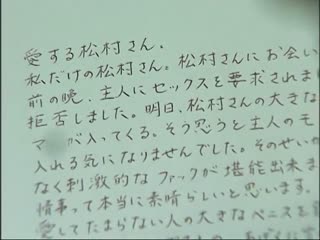 愛する松村さん、
私だけの松村さん。松村さんにお会い
前の晩、主人にセックスを要求されま
拒否しました。明日、松村さんの大きな
マ が入ってくる。そう思うと主人のモ
入れる気になりませんでした。そのせいか
なく刺激的なファックが堪能出来ま
情事って本当に素晴らしいと思います。
愛してたまらない人の大きなペニスを